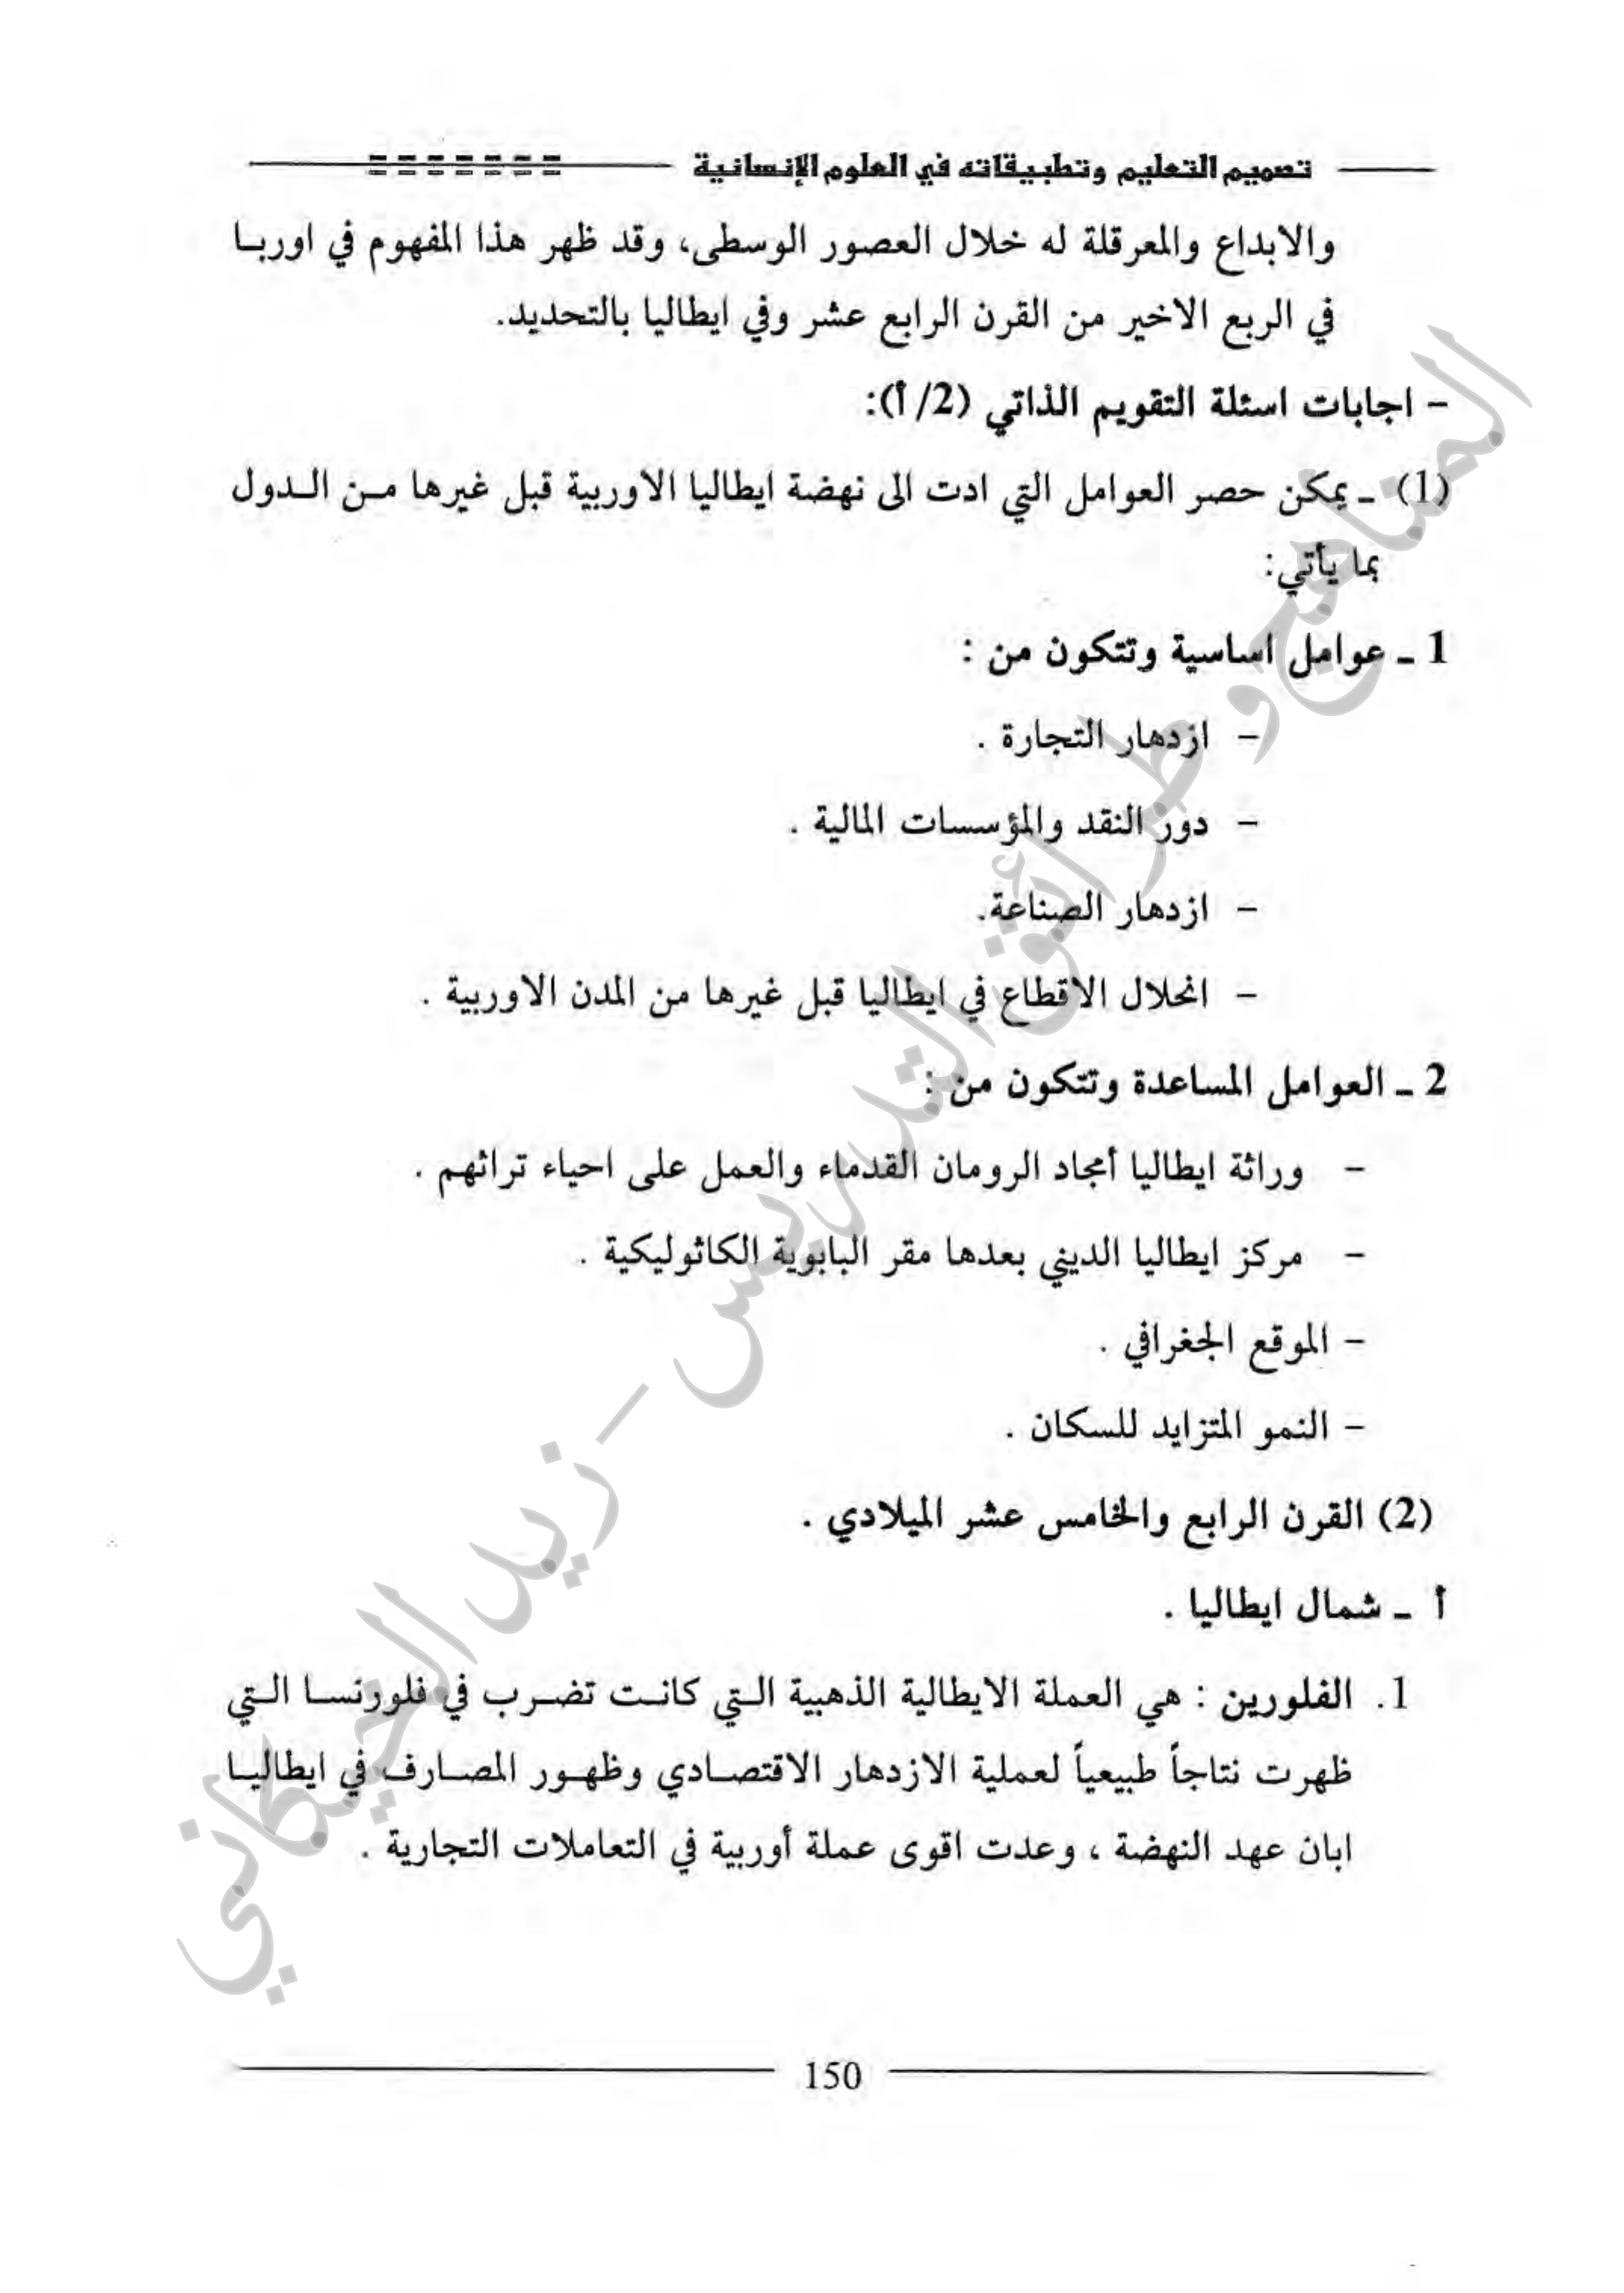 تصميم التعليم وتطبيقاته في العلوم الإنسانية
والابداع والمعرقلة له خلال العصور الوسطى، وقد ظهر هذا المفهوم في اوربا
في الربع الاخير من القرن الرابع عشر وفي ايطاليا بالتحديد.
- اجابات اسئلة التقويم الذاتي (2/أ):
(1) ـ يمكن حصر العوامل التي ادت الى نهضة ايطاليا الاوربية قبل غيرها من الدول
بما يأتي:
1 ـ عوامل اساسية وتتكون من :
- ازدهار التجارة .
- دور النقد والمؤسسات المالية .
- ازدهار الصناعة.
- انحلال الاقطاع في ايطاليا قبل غيرها من المدن الاوربية .
2 ـ العوامل المساعدة وتتكون من :
- وراثة ايطاليا أمجاد الرومان القدماء والعمل على احياء تراثهم .
- مركز ايطاليا الديني بعدها مقر البابوية الكاثوليكية .
- الموقع الجغرافي .
- النمو المتزايد للسكان .
(2) القرن الرابع والخامس عشر الميلادي .
أ ـ شمال ايطاليا .
1. الفلورين : هي العملة الايطالية الذهبية التي كانت تضرب في فلورنسا التي
ظهرت نتاجاً طبيعياً لعملية الازدهار الاقتصادي وظهور المصارف في ايطاليا
ابان عهد النهضة ، وعدت اقوى عملة أوربية في التعاملات التجارية .
150
المناهج وطرائق التدريس - زيد الخيكاني